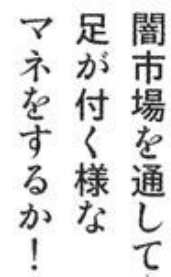 闇市場を通して
足が付く様な
マネをするか！